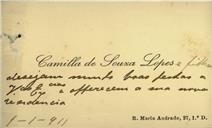 Camilla de Souza Lopes e filhos
desejam muito boas festas a
V. Ex.cias e offerecem a sua nova
residencia
1-1-911
R. Maria Andrade, 37, 1.º D.